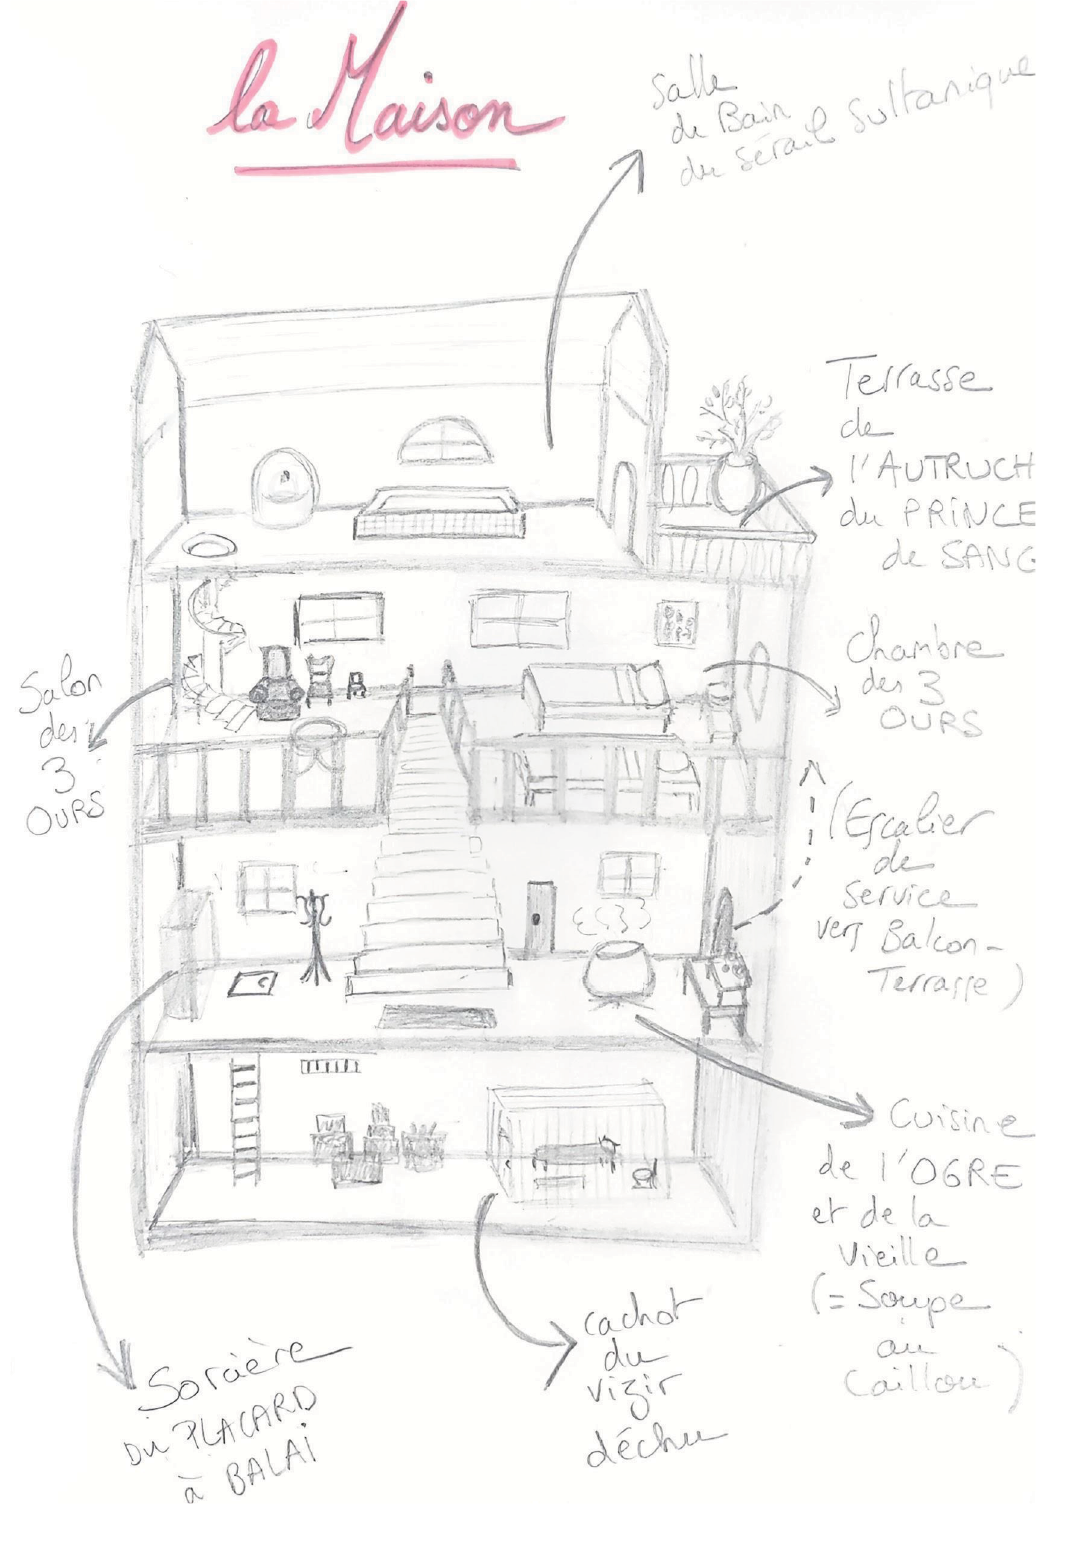 la Maison
Salle
de Bain
du sérail Sultanique
Terrasse
de
l'AUTRUCH
du PRINCE
de SANG
Chambre
des 3
OURS
Salon
des
3
OURS
(Escalier
de
Service
vers Balcon-
Terrasse)
Cuisine
de l'OGRE
et de la
Vieille
(= Soupe
au
Caillou)
cachot
du
vizir
déchu
Sorcière
Du PLACARD
à BALAI